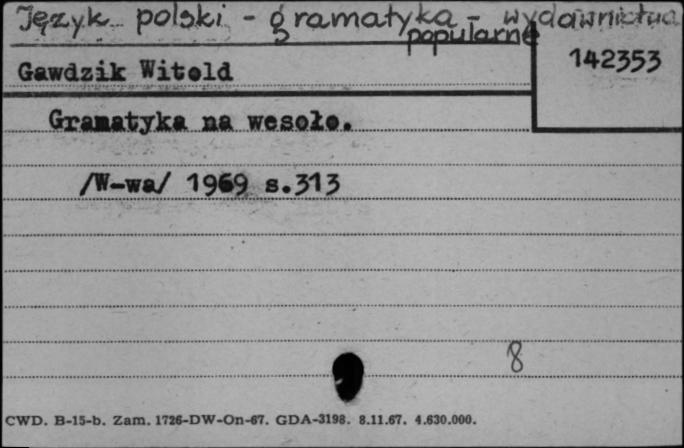 Język polski - gramatyka - wydawnictwa
popularne
142353
Gawdzik Witold
Gramatyka na wesoło.
/W-wa/ 1969 s.313
8
CWD. B-15-b. Zam. 1726-DW-On-67. GDA-3198. 8.11.67. 4.630.000.